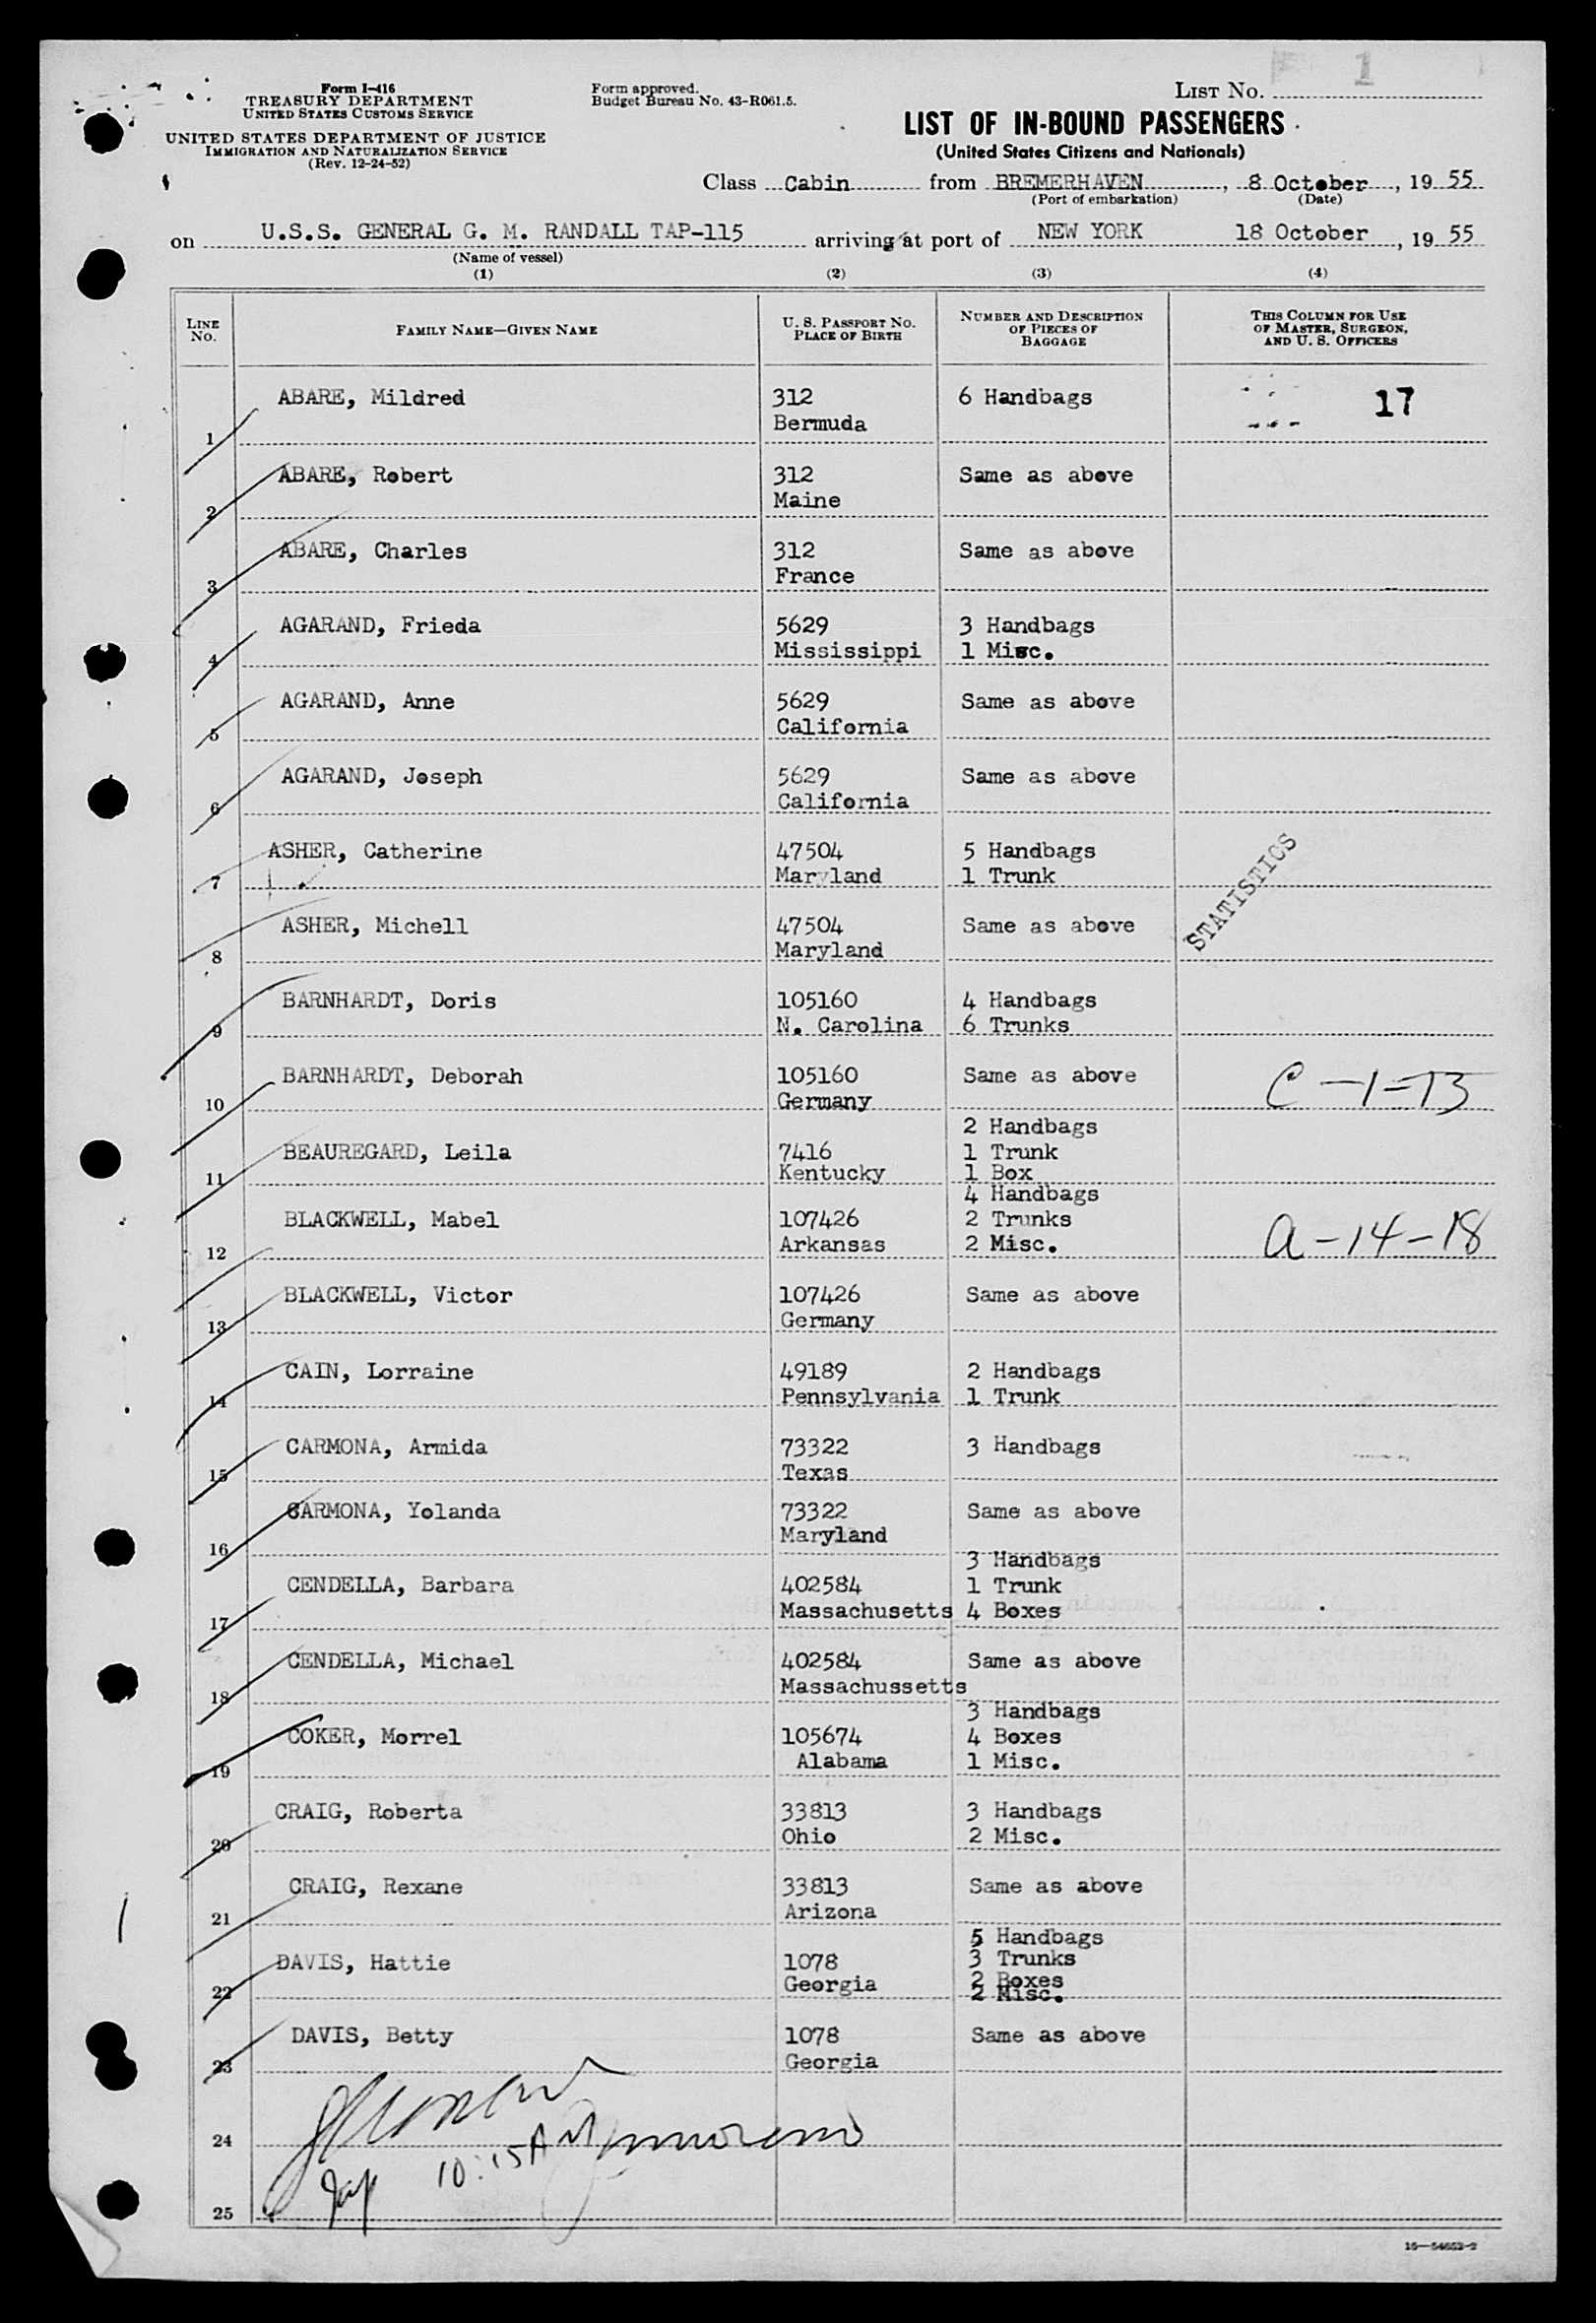 1
Form I-416
TREASURY DEPARTMENT
UNITED STATES CUSTOMS SERVICE
UNITED STATES DEPARTMENT OF JUSTICE
IMMIGRATION AND NATURALIZATION SERVICE
(Rev. 12-24-52)
Form approved.
Budget Bureau No. 43-R061.5.
LIST NO.
LIST OF IN-BOUND PASSENGERS
(United States Citizens and Nationals)
Class Cabin from BREMERHAVEN, 8 October, 19 55
(Port of embarkation) (Date)
on U.S.S. GENERAL G. M. RANDALL TAP-115 arriving at port of NEW YORK 18 October, 19 55
(Name of vessel)
(1) (2) (3) (4)
LINE NO. FAMILY NAME—GIVEN NAME U. S. PASSPORT NO. PLACE OF BIRTH NUMBER AND DESCRIPTION OF PIECES OF BAGGAGE THIS COLUMN FOR USE OF MASTER, SURGEON, AND U. S. OFFICERS
ABARE, Mildred 312 6 Handbags 17
1 Bermuda
ABARE, Robert 312 Same as above
2 Maine
ABARE, Charles 312 Same as above
3 France
AGARAND, Frieda 5629 3 Handbags
4 Mississippi 1 Misc.
AGARAND, Anne 5629 Same as above
5 California
AGARAND, Joseph 5629 Same as above
6 California
ASHER, Catherine 47504 5 Handbags
7 Maryland 1 Trunk
STATISTICS
ASHER, Michell 47504 Same as above
8 Maryland
BARNHARDT, Doris 105160 4 Handbags
9 N. Carolina 6 Trunks
BARNHARDT, Deborah 105160 Same as above C-1-13
10 Germany
2 Handbags
BEAUREGARD, Leila 7416 1 Trunk
11 Kentucky 1 Box
4 Handbags
BLACKWELL, Mabel 107426 2 Trunks
12 Arkansas 2 Misc. A-14-18
BLACKWELL, Victor 107426 Same as above
13 Germany
CAIN, Lorraine 49189 2 Handbags
14 Pennsylvania 1 Trunk
CARMONA, Armida 73322 3 Handbags
15 Texas
CARMONA, Yolanda 73322 Same as above
16 Maryland
3 Handbags
CENDELLA, Barbara 402584 1 Trunk
17 Massachusetts 4 Boxes
CENDELLA, Michael 402584 Same as above
18 Massachussetts
3 Handbags
COKER, Morrel 105674 4 Boxes
19 Alabama 1 Misc.
CRAIG, Roberta 33813 3 Handbags
20 Ohio 2 Misc.
CRAIG, Rexane 33813 Same as above
21 Arizona
5 Handbags
DAVIS, Hattie 1078 3 Trunks
22 Georgia 2 Boxes
2 Misc.
DAVIS, Betty 1078 Same as above
23 Georgia
24
10:15 AM
25
16—54652-2